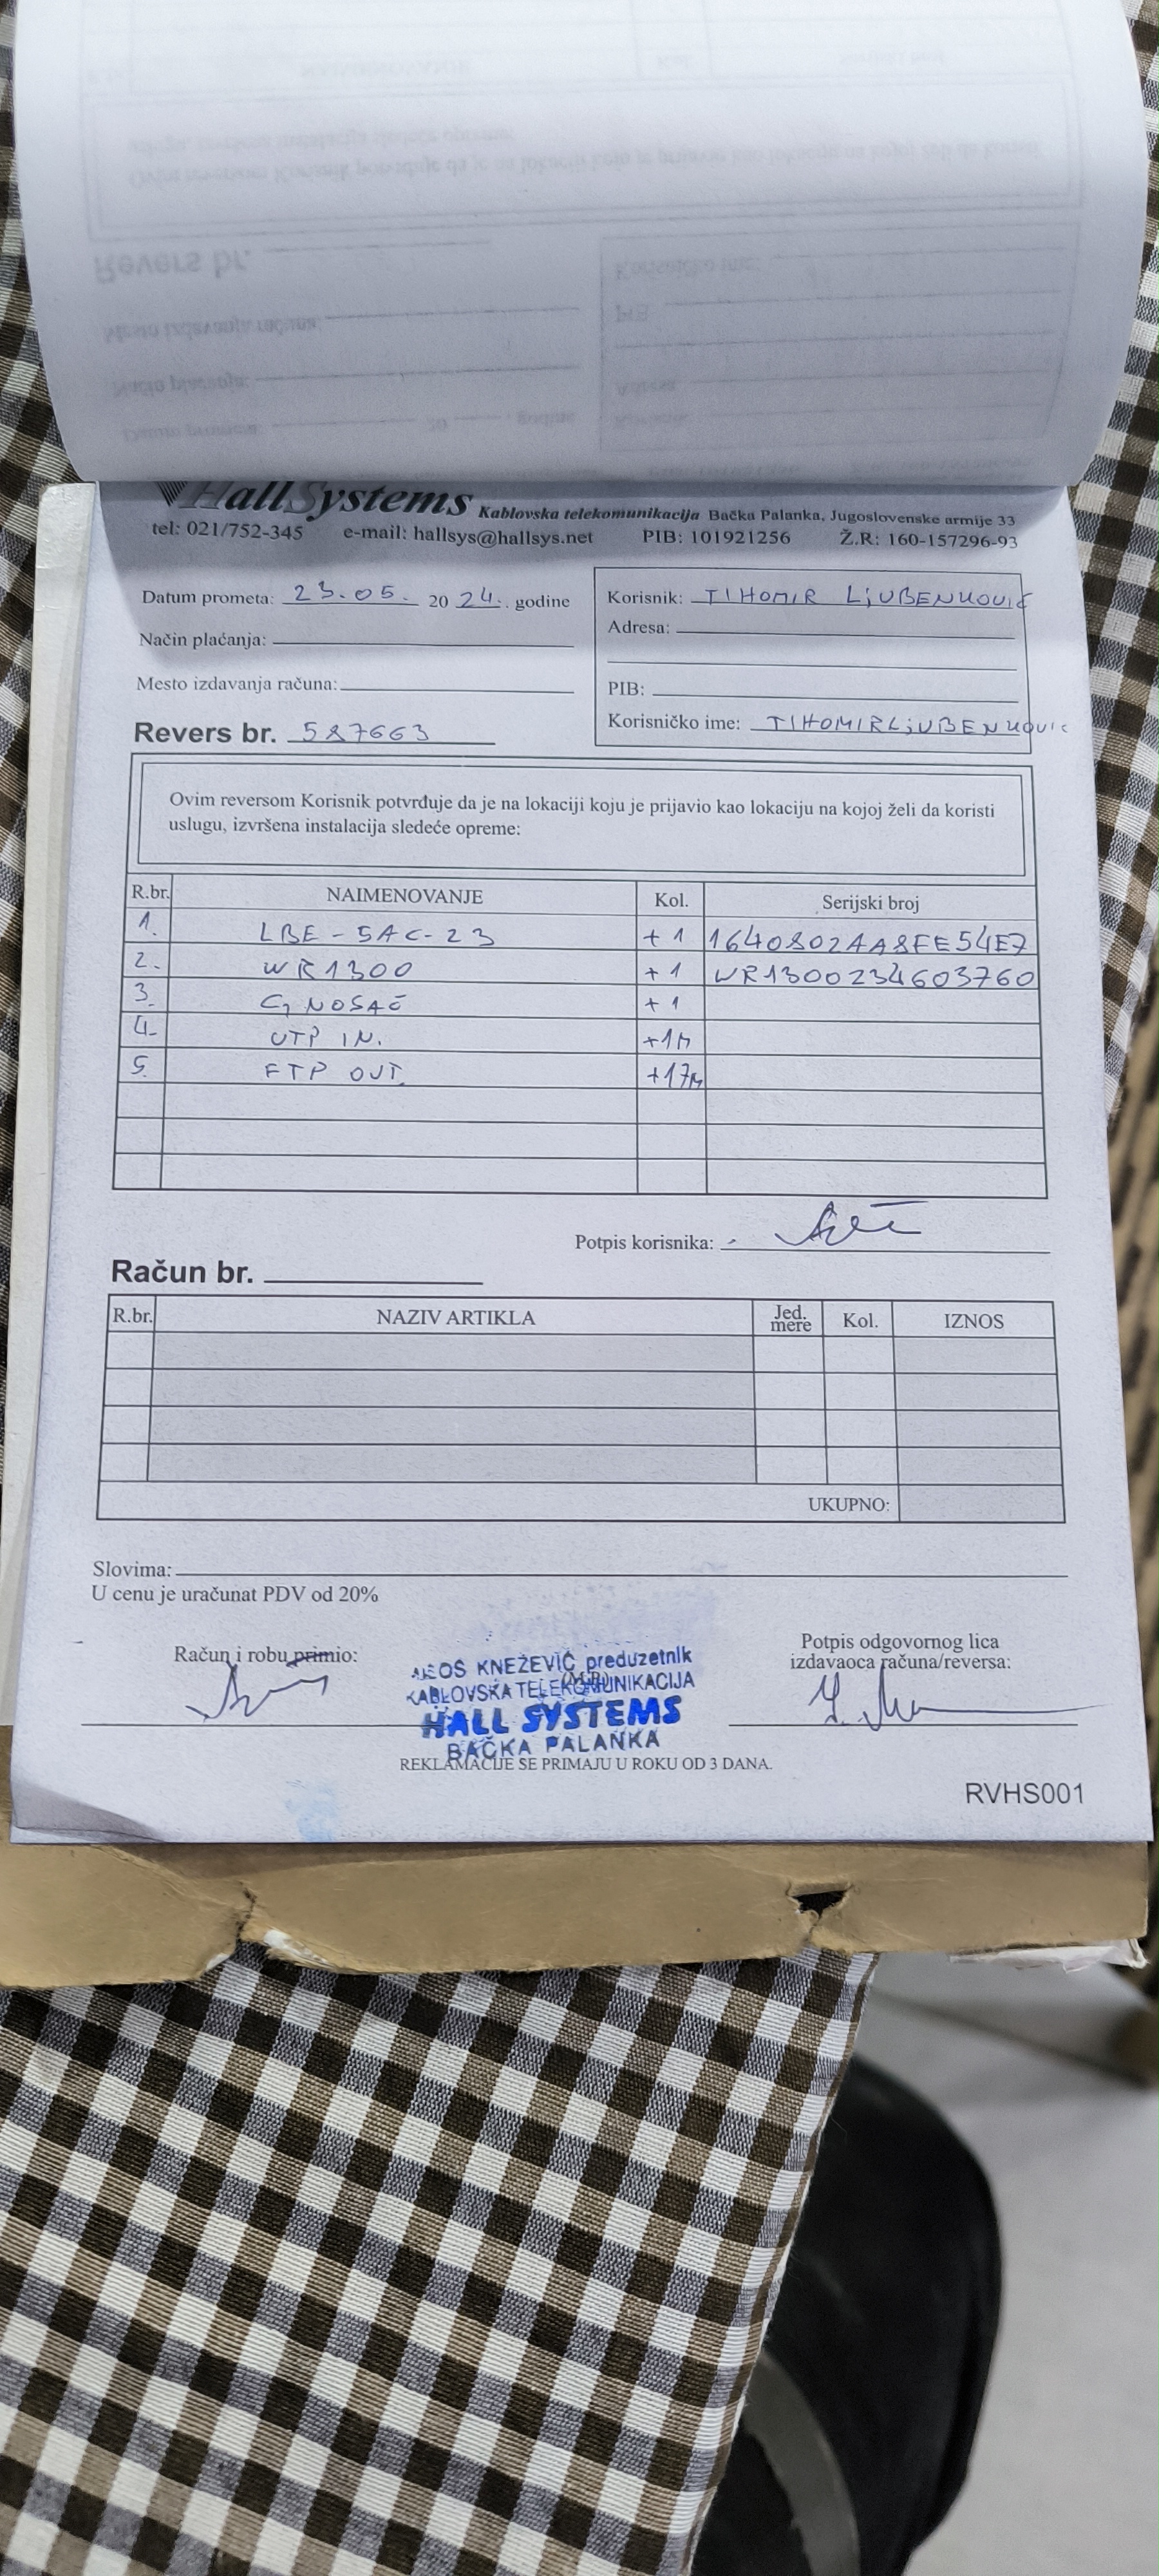 HallSystems Kablovska telekomunikacija Bačka Palanka, Jugoslovenske armije 33
tel: 021/752-345 e-mail: hallsys@hallsys.net PIB: 101921256 Ž.R: 160-157296-93
Datum prometa: 23.05. 2024. godine
Način plaćanja:
Mesto izdavanja računa:
Revers br. 587663
Korisnik: TIHOMIR LjUBENKOVIĆ
Adresa:
PIB:
Korisničko ime: TIHOMIRLjUBENKOVIC
Ovim reversom Korisnik potvrđuje da je na lokaciji koju je prijavio kao lokaciju na kojoj želi da koristi
uslugu, izvršena instalacija sledeće opreme:
R.br. NAIMENOVANJE Kol. Serijski broj
1. LBE-5AC-23 +1 1640802AA8FE54E7
2. WR1300 +1 WR1300234603760
3. G NOSAČ +1
4. UTP IN. +1m
5. FTP OUT. +17m
Potpis korisnika:
Račun br.
R.br. NAZIV ARTIKLA Jed. mere Kol. IZNOS
UKUPNO:
Slovima:
U cenu je uračunat PDV od 20%
Račun i robu primio:
KNEŽEVIĆ preduzetnik
KABLOVSKA TELEKOMUNIKACIJA
(M.P.)
HALL SYSTEMS
BAČKA PALANKA
Potpis odgovornog lica
izdavaoca računa/reversa:
REKLAMACIJE SE PRIMAJU U ROKU OD 3 DANA.
RVHS001